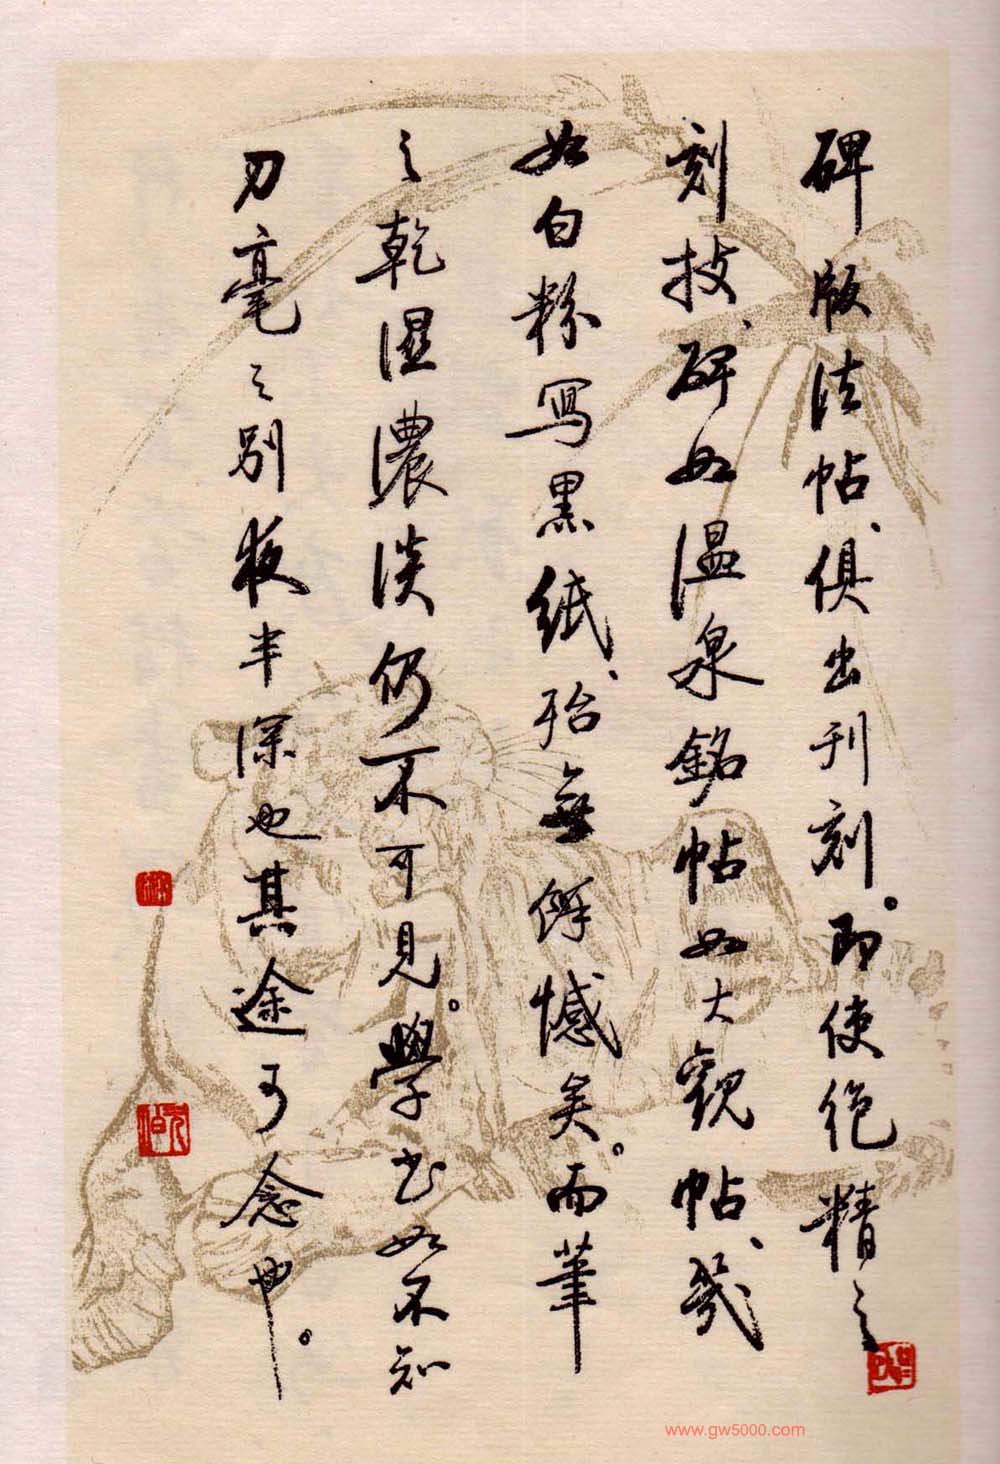 碑版法帖、俱出刊刻。即使絶精之
刻技、碑如温泉銘帖如大觀帖、幾
如白粉寫黑紙、殆無餘憾矣。而筆
之乾濕濃淡仍不可見。學書如不知
刀毫之别夜半深也其途可念也。
www.gw5000.com